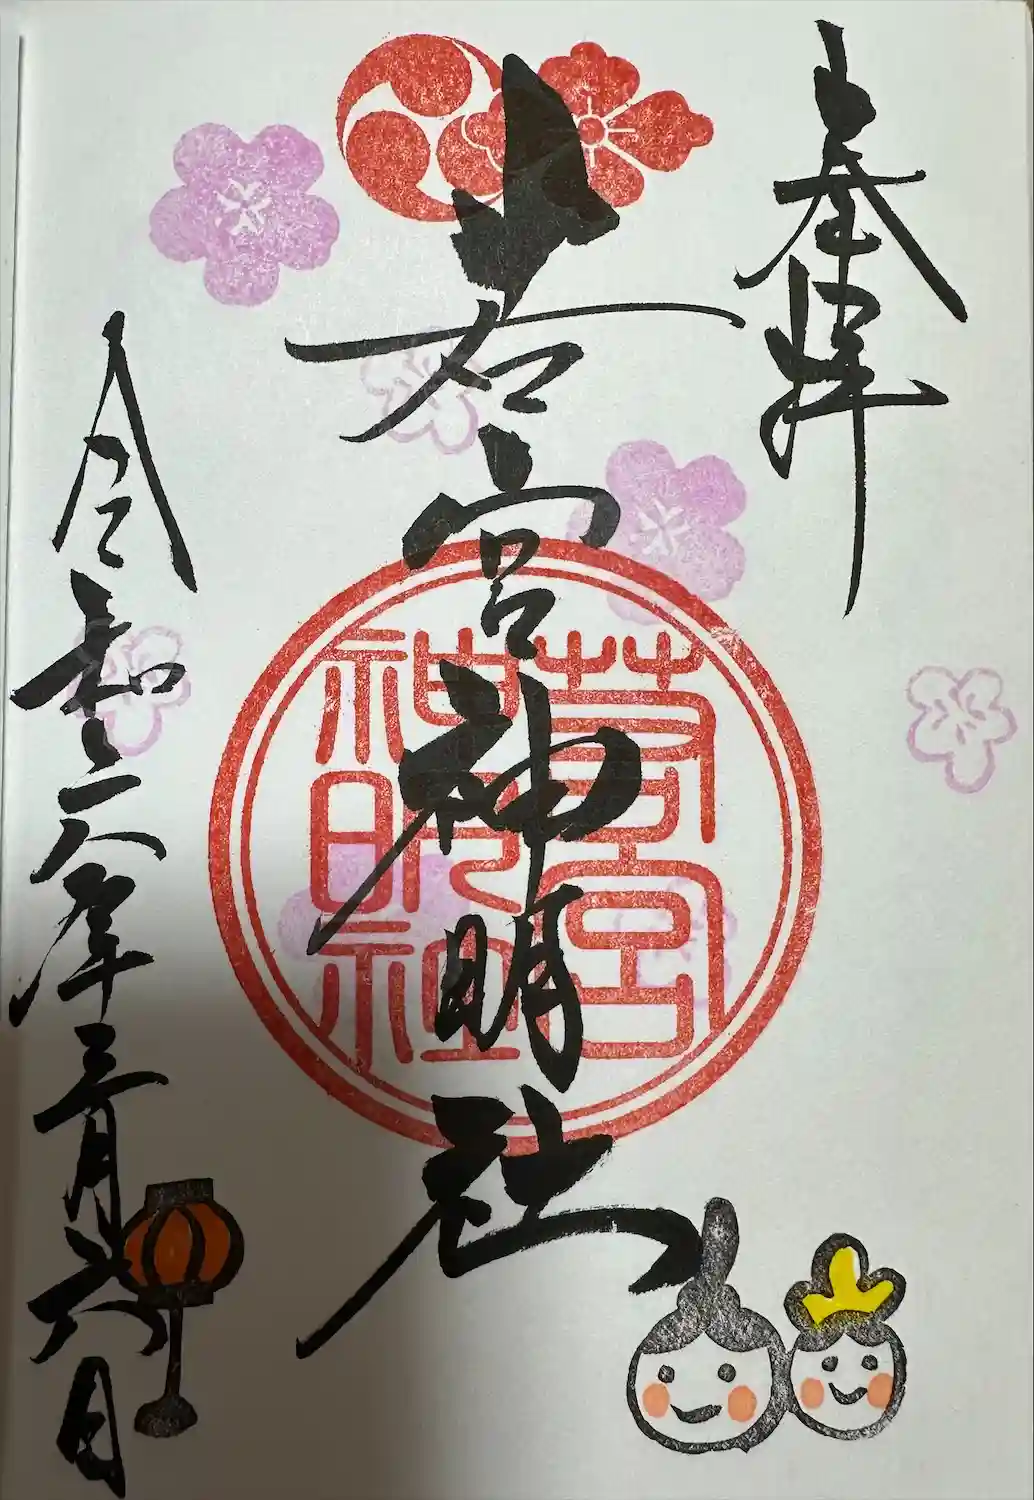 奉拝
若宮神明社
令和六年三月六日
若宮
神明社